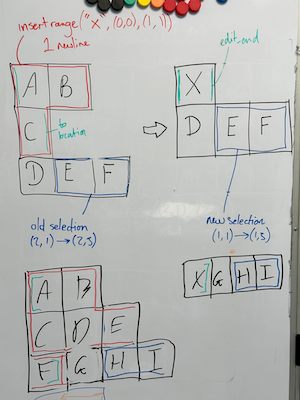 insert range("X", (0,0), (1,1))
1 newline
edit_end
A B
C
to
location
D E F
X
D E F
old selection
(2, 1) → (2, 3)
new selection
(1, 1) → (1, 3)
A B
C D E
F G H I
X G H I